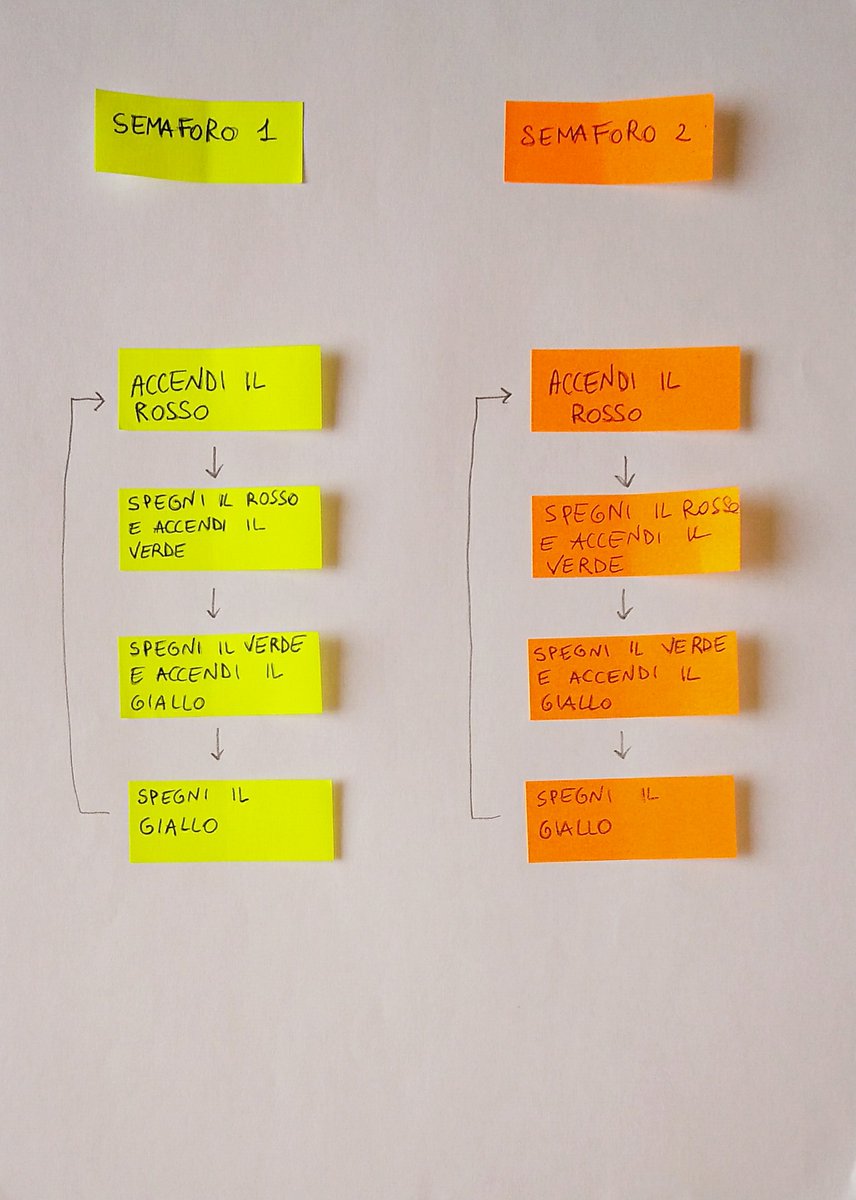 SEMAFORO 1
ACCENDI IL
ROSSO
SPEGNI IL ROSSO
E ACCENDI IL
VERDE
SPEGNI IL VERDE
E ACCENDI IL
GIALLO
SPEGNI IL
GIALLO
SEMAFORO 2
ACCENDI IL
ROSSO
SPEGNI IL ROSSO
E ACCENDI IL
VERDE
SPEGNI IL VERDE
E ACCENDI IL
GIALLO
SPEGNI IL
GIALLO